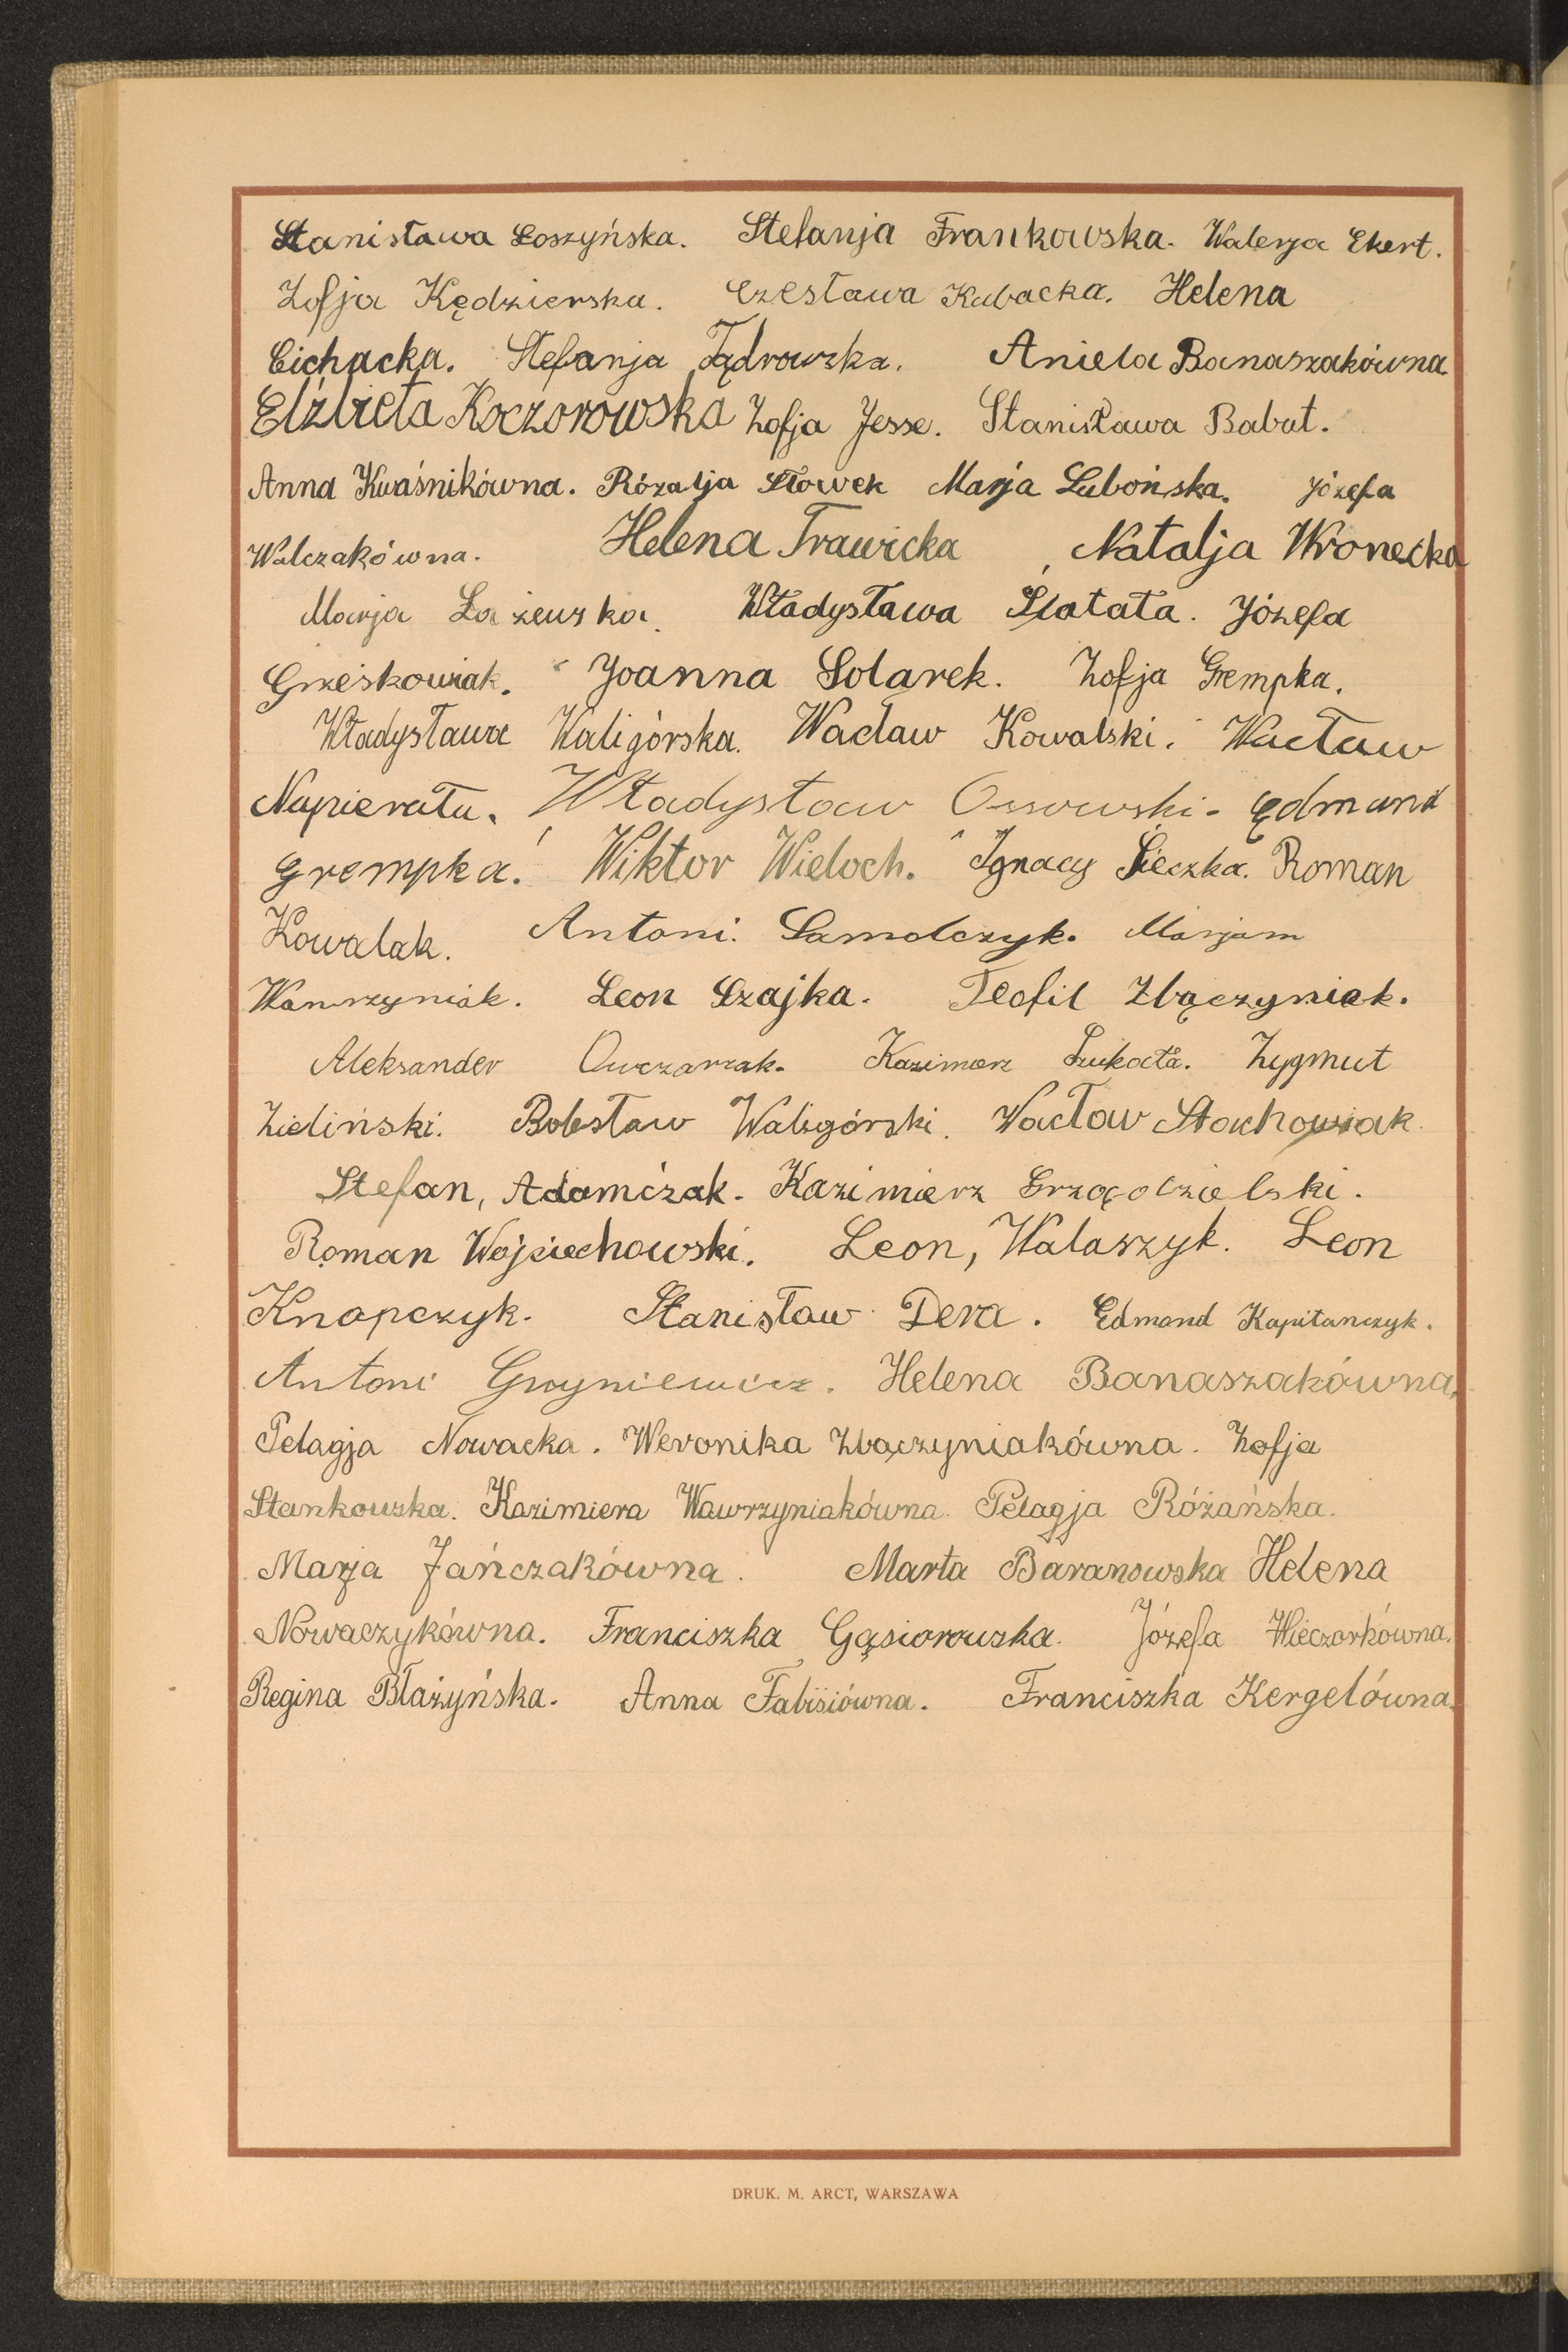 Stanisława Łoszyńska. Stefanja Frankowska. Walerja Ekert.
Zofja Kędzierska. Czesława Kubacka. Helena
Cichacka. Stefanja Jądrowska. Aniela Banaszakówna
Elżbieta Koczorowska Zofja Jesse. Stanisława Babut.
Anna Kwaśnikówna. Rózalja Słowek Marja Lubońska. Józefa
Walczakówna. Helena Trawicka Natalja Wronecka
Marja Łażewska. Władysława Sałata. Józefa
Grześkowiak. Joanna Solarek. Zofja Grempka.
Władysława Waligórska. Wacław Kowalski. Wacław
Napierała. Władysław Ossowski. Edmund
Grempka. Wiktor Wieloch. Ignacy Sieczka. Roman
Kowalak. Antoni. Samolczyk. Marjam
Wawrzyniak. Leon Szajka. Teofil Zbączyniak.
Aleksander Owczarzak. Kazimierz Zygmut
Zieliński. Bolesław Waligórski. Wacław Stachowiak.
Stefan, Adamczak. Kazimierz Grządzielski.
Roman Wojciechowski. Leon, Walaszyk. Leon
Knapczyk. Stanisław Dera. Edmund Kapitańczyk.
Antoni Helena Banaszakówna,
Pelagja Nowacka. Weronika Zbączyniakówna. Zofja
Stankowska. Kazimiera Wawrzyniakówna. Pelagja Różańska.
Marja Jańczakówna. Marta Baranowska Helena
Nowaczykówna. Franciszka Gąsiorowska. Józefa Wieczorkówna.
Regina Błażyńska. Anna Fabisiówna. Franciszka Kergelówna.
DRUK. M. ARCT, WARSZAWA